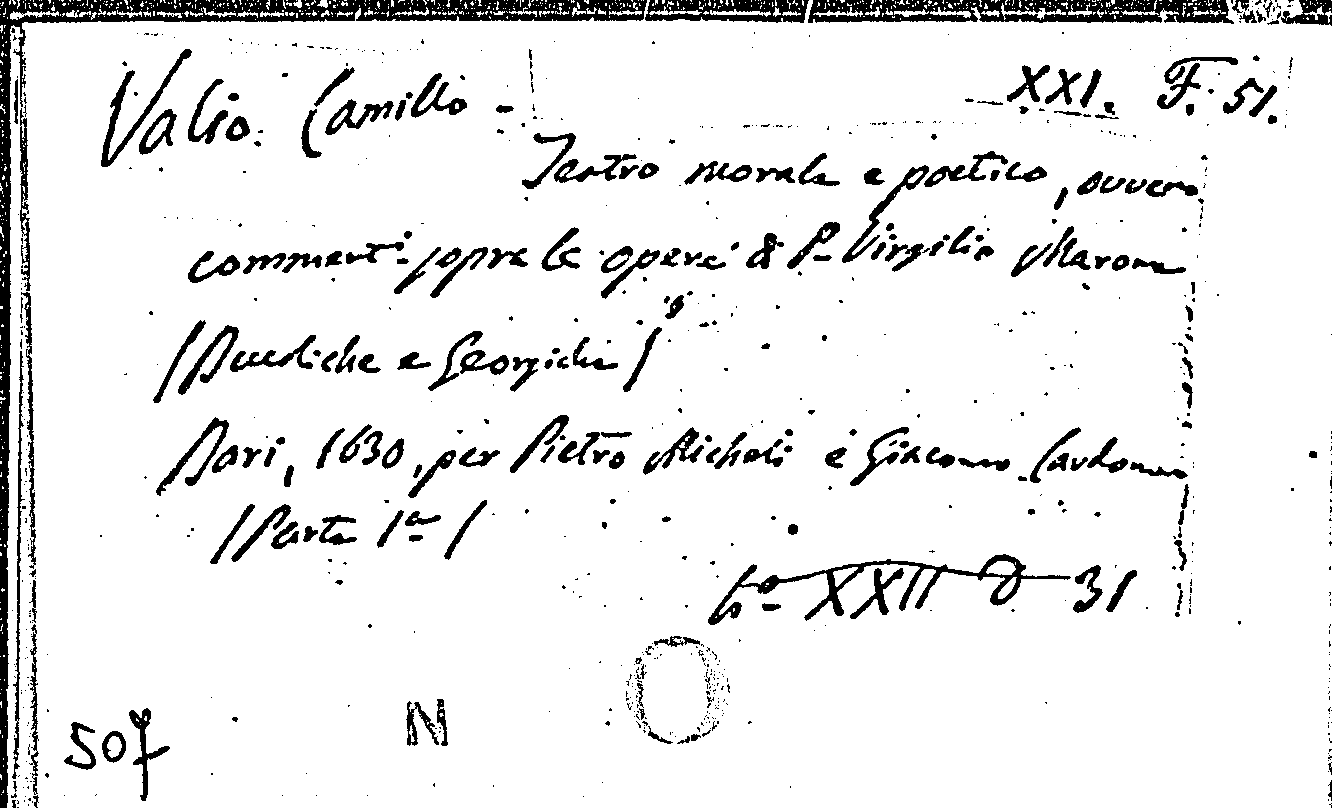 Valio Camillo - XXI. F. 51.
Teatro morale e poetico, ovvero
commenti sopra le opere di P. Virgilio Marone
(Bucoliche e Georgiche)
Bari, 1630, per Pietro Micheli e Giacomo Cardone
(Parte 1a)
6o XXII D 31
N
507